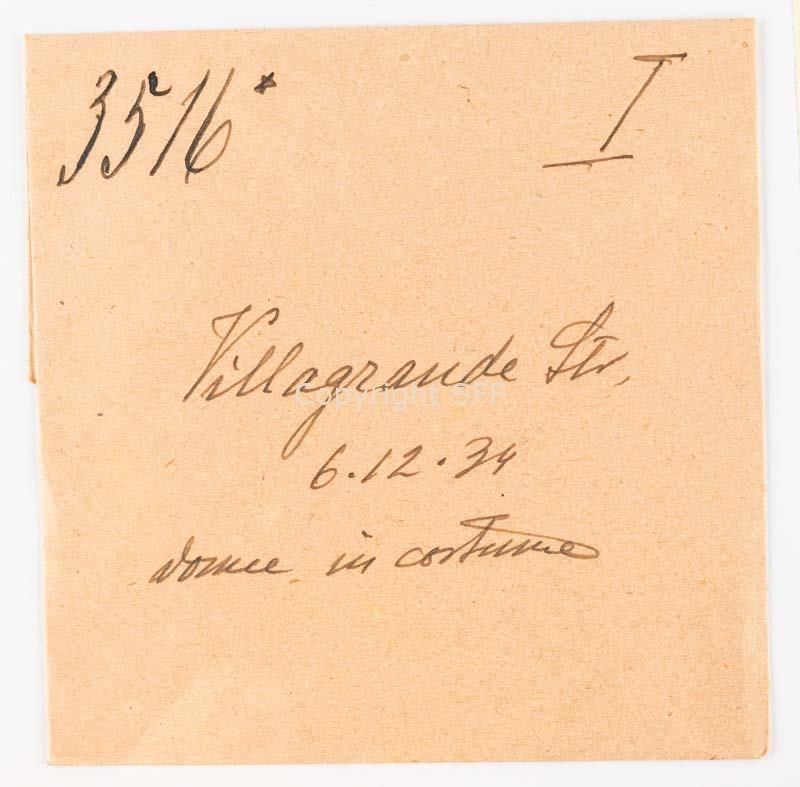 3516* I
Villagrande Str.
Copyright SFF
6.12.34
donne in costume